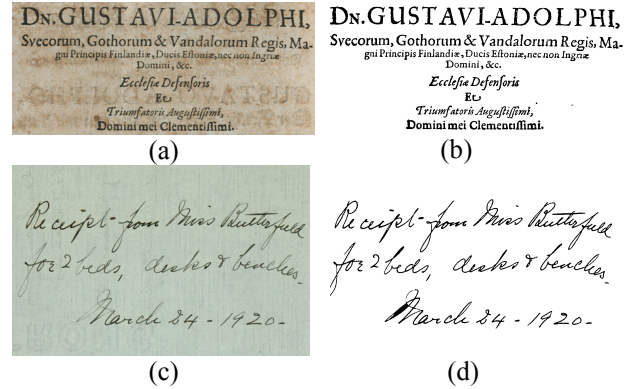 DN. GUSTAVI-ADOLPHI,
Svecorum, Gothorum & Vandalorum Regis, Ma-
gni Principis Finlandiæ, Ducis Eſtoniæ, nec non Ingriæ
Domini, &c.
Eccleſiæ Defenſoris
Et
Triumfatoris Auguſtiſſimi,
Domini mei Clementiſſimi.
(a)
DN. GUSTAVI-ADOLPHI,
Svecorum, Gothorum & Vandalorum Regis, Ma-
gni Principis Finlandiæ, Ducis Eſtoniæ, nec non Ingriæ
Domini, &c.
Eccleſiæ Defenſoris
Et
Triumfatoris Auguſtiſſimi,
Domini mei Clementiſſimi.
(b)
Receipt from Miss Butterfield
for 2 beds, desks & benches.
March 24 - 1920 -
(c)
Receipt from Miss Butterfield
for 2 beds, desks & benches.
March 24 - 1920 -
(d)